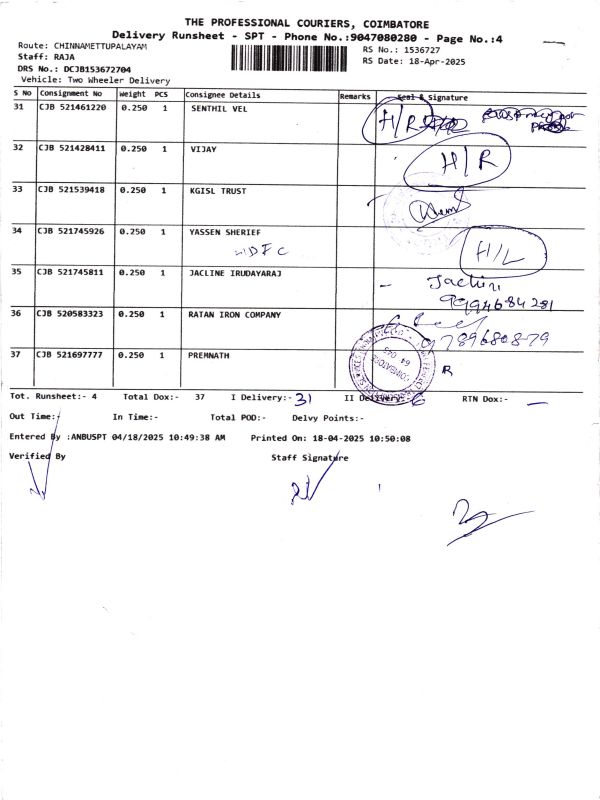 THE PROFESSIONAL COURIERS, COIMBATORE
Delivery Runsheet - SPT - Phone No.:9047080280 - Page No.:4
Route: CHINNAMETTUPALAYAM
RS No.: 1536727
Staff: RAJA
RS Date: 18-Apr-2025
DRS No.: DCJB153672704
Vehicle: Two Wheeler Delivery
S No Consignment No Weight PCS Consignee Details Remarks Seal & Signature
31 CJB 521461220 0.250 1 SENTHIL VEL H/R
32 CJB 521428411 0.250 1 VIJAY H/R
33 CJB 521539418 0.250 1 KGISL TRUST
34 CJB 521745926 0.250 1 YASSEN SHERIEF H/L
35 CJB 521745811 0.250 1 JACLINE IRUDAYARAJ
9994684281
36 CJB 520583323 0.250 1 RATAN IRON COMPANY
9789680879
37 CJB 521697777 0.250 1 PREMNATH R
COIMBATORE
Tot. Runsheet:- 4 Total Dox:- 37 I Delivery:- 31 II Delivery:- 6 RTN Dox:- —
Out Time:- In Time:- Total POD:- Delvy Points:-
Entered By :ANBUSPT 04/18/2025 10:49:38 AM Printed On: 18-04-2025 10:50:08
Verified By Staff Signature